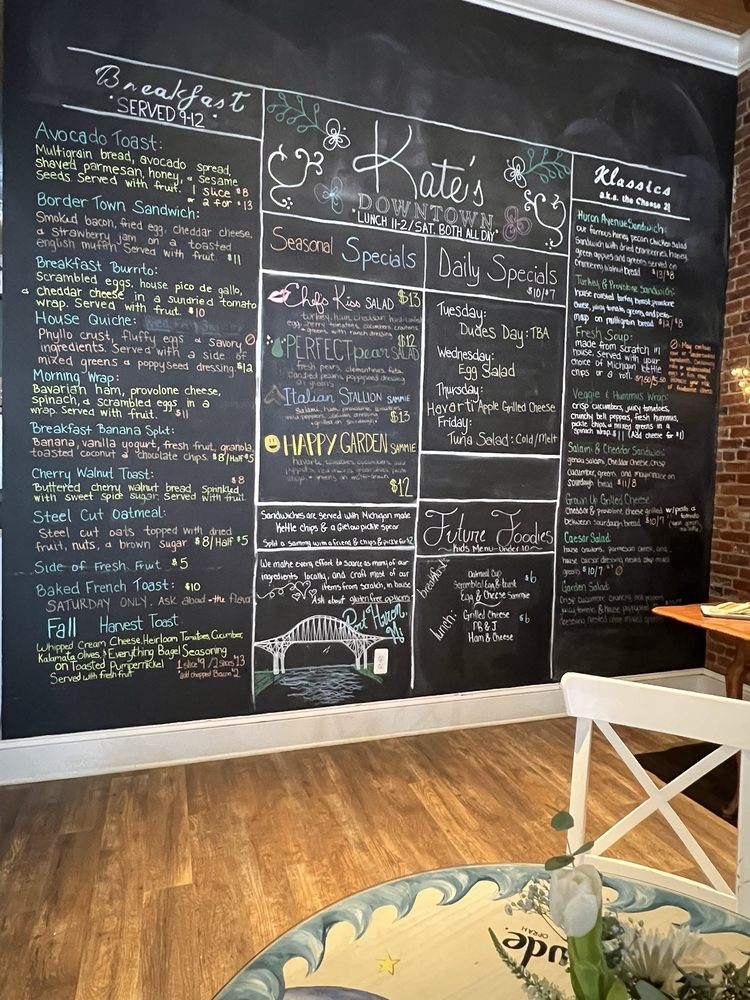 Breakfast
· SERVED 9-12 ·
Avocado Toast:
Multigrain bread, avocado spread,
shaved parmesan, honey, & sesame
seeds. Served with fruit. 1 slice $8
or 2 for $13
Border Town Sandwich:
Smoked bacon, fried egg, cheddar cheese,
& strawberry jam on a toasted
english muffin. Served with fruit. $11
Breakfast Burrito:
Scrambled eggs, house pico de gallo,
& cheddar cheese in a sundried tomato
wrap. Served with fruit. $10
House Quiche:
Phyllo crust, fluffy eggs & savory
ingredients. Served with a side of
mixed greens & poppyseed dressing.
Morning Wrap:
Bavarian ham, provolone cheese,
spinach, & scrambled eggs in a
wrap. Served with fruit. $11
Breakfast Banana Split:
Banana, vanilla yogurt, fresh fruit, granola,
toasted coconut & chocolate chips. $8/Half $5
Cherry Walnut Toast: $8
Buttered cherry walnut bread. Sprinkled
with sweet spice sugar. Served with fruit.
Steel Cut Oatmeal:
Steel cut oats topped with dried
fruit, nuts, & brown sugar $8/Half $5
Side of Fresh Fruit $5
Baked French Toast: $10
SATURDAY ONLY. Ask about the flavor
Fall Harvest Toast:
Whipped Cream Cheese, Heirloom Tomatoes, Cucumber,
Kalamata Olives, & Everything Bagel Seasoning
on Toasted Pumpernickel 1 slice $9 / 2 slices $13
Served with fresh fruit *add chopped Bacon $2
Kate's
DOWNTOWN
*LUNCH 11-2/SAT. BOTH ALL DAY*
Seasonal Specials
Chef's Kiss SALAD $13
turkey, ham, cheddar, hard-boiled
egg, cherry tomatoes, cucumbers, croutons
& greens with ranch dressing
PERFECT pear SALAD $12
fresh pears, clementines, feta
candied pecans, poppyseed dressing
on greens
Italian STALLION SAMMIE
$13
HAPPY GARDEN SAMMIE
$12
Sandwiches are served with Michigan made
kettle chips & a Gielow pickle spear
Split a sammy with a friend & chips & pickle for $2
We make every effort to source as many of our
ingredients locally, and craft most of our
items from scratch, in house
Ask about gluten free options
Port Huron, Mi
Daily Specials
$10/$7
Tuesday:
Dudes Day: TBA
Wednesday:
Egg Salad
Thursday:
Havarti Apple Grilled Cheese
Friday:
Tuna Salad: Cold/Melt
Future Foodies
~ Kids Menu- Under 10 ~
breakfast:
Oatmeal Cup
Scrambled Egg & toast $6
Egg & Cheese Sammie
lunch:
Grilled Cheese
PB & J $6
Ham & Cheese
Klassics
a.k.a. the Cheese 2!
Huron Avenue Sandwich:
our famous honey pecan chicken salad
sandwich with dried cranberries, honey,
green apples and greens served on
cranberry walnut bread $13/$8
Turkey & Provolone Sandwich:
house roasted turkey breast, provolone
cheese, juicy tomato, greens, and pesto
mayo on multigrain bread $12/$8
Fresh Soup:
made from scratch in
house. served with your
choice of Michigan kettle
chips or a roll
Veggie & Hummus Wrap:
crisp cucumbers, juicy tomatoes,
crunchy bell peppers, fresh hummus,
pickle chips, & mixed greens in a
spinach wrap $11 (Add cheese for $1)
Salami & Cheddar Sandwich:
genoa salami, cheddar cheese, crisp
cucumber, greens, and mayonnaise on
sourdough bread $11/8
Grown Up Grilled Cheese:
cheddar & provolone cheese grilled w/pesto &
between sourdough bread $10/7 tomato
Caesar Salad:
house croutons, parmesan cheese, and
house caesar dressing, nested atop mixed
greens $10/7
Garden Salad:
crisp cucumber, crunchy bell peppers
juicy tomato, & house poppyseed
dressing nested atop mixed greens
OPRAH